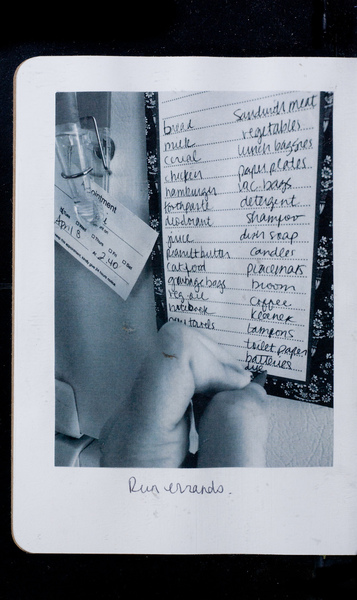 bread
milk
cereal
chicken
hamburger
toothpaste
deodorant
juice
peanut butter
cat food
garbage bags
veg. oil
notebook
towels
sandwich meat
vegetables
lunch baggies
paper plates
sac. bags
detergent
shampoo
dish soap
candles
placemats
broom
coffee
kleenex
tampons
toilet paper
batteries
dye
April 8
2:40
Run errands.